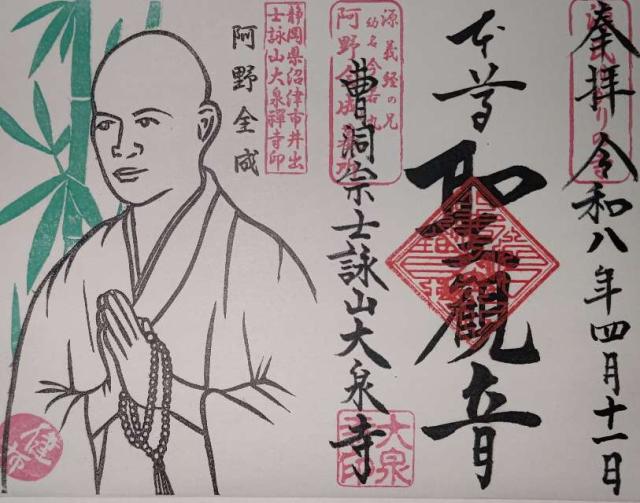 奉拝 令和八年四月十一日
本尊
聖観音
源義経の兄
幼名今若丸
曹洞宗士詠山大泉寺
大泉
静岡県沼津市井出
士詠山大泉禅寺印
阿野全成